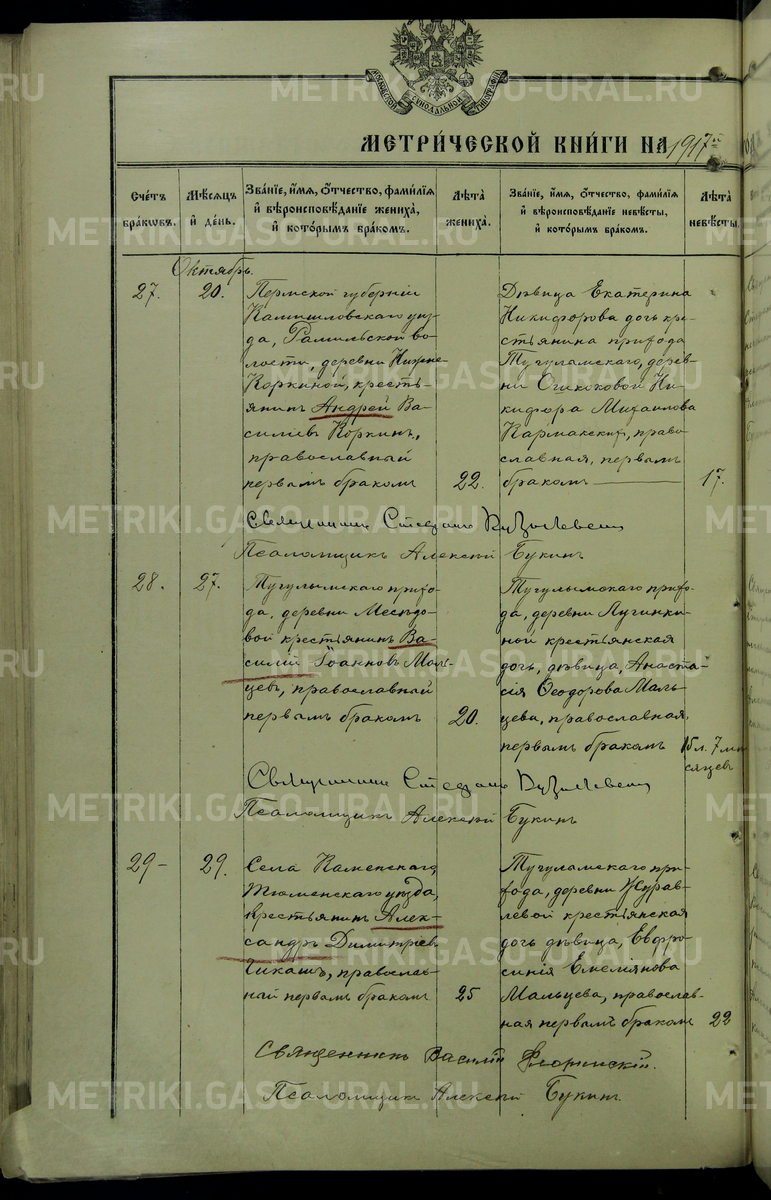 МЕТРИ́ЧЕСКОЙ КНИ́ГИ НА 1917й
Сче́тъ бра́кѡвъ.
Мѣ́сѧцъ и҆ де́нь.
Зва́нїе, и҆́мѧ, ѻ҆́тчество, фами́лїѧ и҆ вѣроисповѣ́данїе жениха̀, и҆ кото́рымъ бра́комъ.
Лѣ́та жениха̀.
Зва́нїе, и҆́мѧ, ѻ҆́тчество, фами́лїѧ и҆ вѣроисповѣ́данїе невѣ́сты, и҆ кото́рымъ бра́комъ.
Лѣ́та невѣ́сты.
Октябрь.
27.
20.
Пермской губернiи
Камышловскаго уѣз-
да, Рамыльской во-
лости, деревни Нижне
Коркиной, кресть-
янинъ Андрей Ва-
сильевъ Коркинъ,
православный
первымъ бракомъ
22.
Дѣвица Екатерина
Никифорова дочь кре-
стьянина прихода
Тугулымскаго, дерев-
ни Ни-
кифора Михаилова
Кармакскихъ, право
славная, первымъ
бракомъ
17.
Священникъ Стефанъ
Псаломщикъ Алексiй Букинъ
28.
27.
Тугулымскаго прихо-
да, деревни
крестьянинъ Ва-
силiй Iоанновъ Маль-
цевъ, православный
первымъ бракомъ
20.
Тугулымскаго прихо-
да, деревни Лучинки-
ной крестьянская
дочь, дѣвица, Анаста-
сiя Ѳеодорова Маль-
цева, православная,
первымъ бракомъ
15 л. 7 мѣ
сяцевъ
Священникъ Стефанъ
Псаломщикъ Алексiй Букинъ
29-
29.
Села Каменскаго,
Тюменскаго уѣзда,
крестьянинъ Алек-
сандръ Димитрiевъ
Чикашъ, православ-
ный первымъ бракомъ
25
Тугулымскаго при-
хода, деревни Журав-
левой крестьянская
дочь дѣвица, Евфро-
синiя Емелiянова
Мальцева, православ-
ная первымъ бракомъ
22
Священникъ Василiй Флоринскiй.
Псаломщикъ Алексiй Букинъ.
METRIKI.GASO-URAL.RU